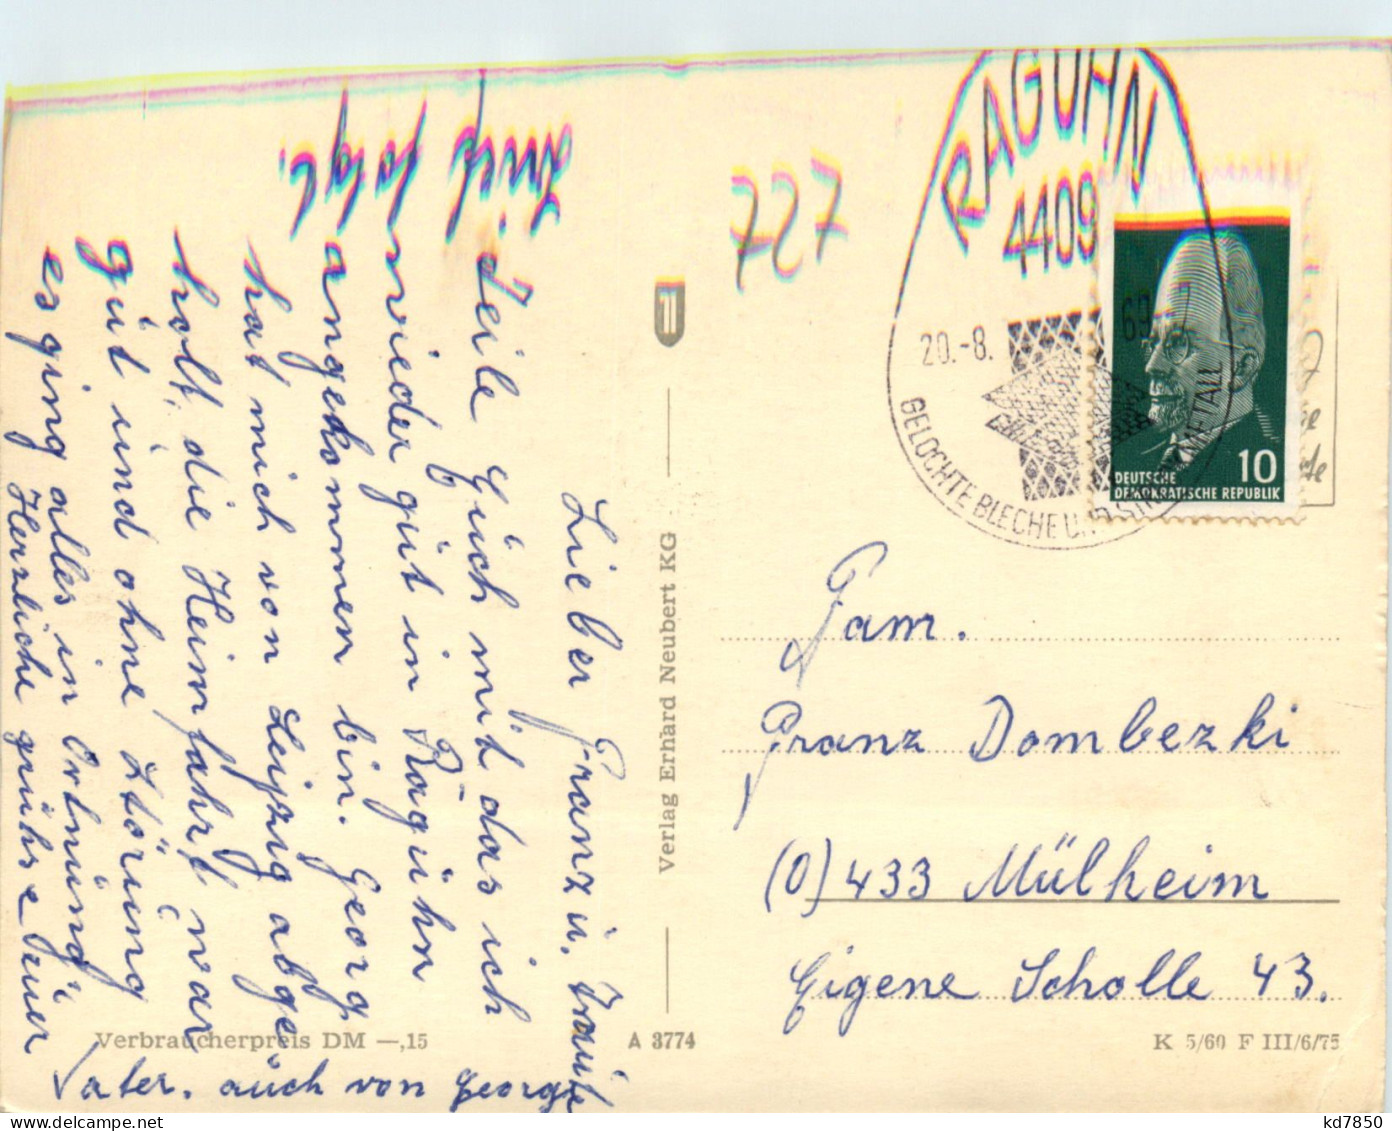 Brief folgt.
Lieber Franz u. Traute
Teile Euch mit das ich
wieder gut in Raguhn
angekommen bin. Georg
hat mich von Leipzig abge
holt, die Heimfahrt war
gut und ohne Störung
es ging alles in Ortnung
Herzliche grühse Euer
Vater. auch von George
Verlag Erhard Neubert KG
727
RAGUHN
4409
20.-8. 69
GELOCHTE BLECHE U.
METALL
10
DEUTSCHE
DEMOKRATISCHE REPUBLIK
Fam.
Franz Dombezki
(0) 433 Mülheim
Eigene Scholle 43.
Verbraucherpreis DM —,15
A 3774
K 5/60 F III/6/75
www.delcampe.net
kd7850